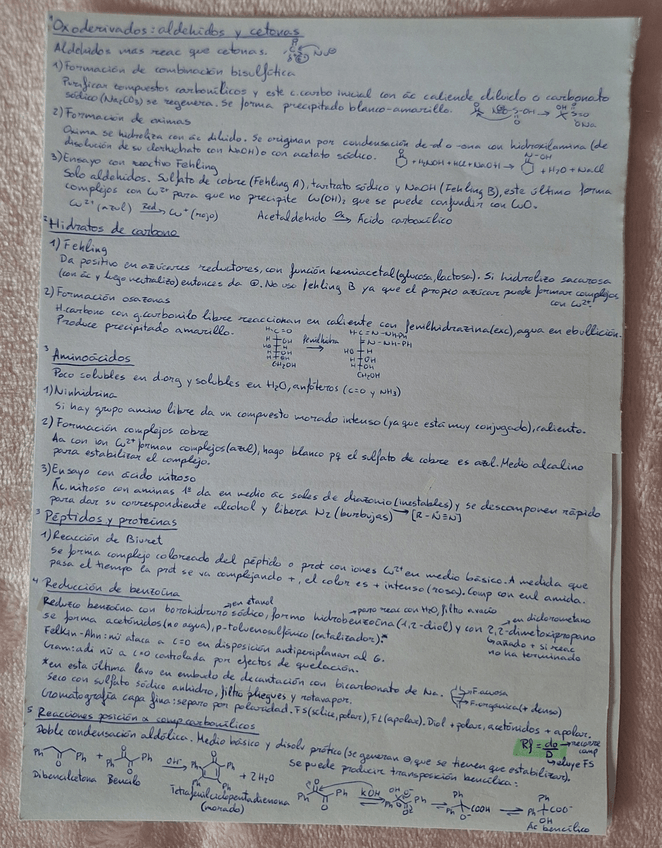 1 Oxoderivados: aldehídos y cetonas
Aldehídos mas reac que cetonas. Nu⊖
1) Formación de combinación bisulfítica
Purificar compuestos carbonílicos y este c. carbo inicial con ác caliende diluido o carbonato
sódico (Na2CO3) se regenera. Se forma precipitado blanco-amarillo.
2) Formación de oximas
Oxima se hidroliza con ác diluido. Se originan por condensación de -al o -ona con hidroxilamina (de
disolución de su clorhidrato con NaOH) o con acetato sódico. + H2NOH + HCl + NaOH → N-OH + H2O + NaCl
3) Ensayo con reactivo Fehling
Solo aldehidos. Sulfato de cobre (Fehling A), tartrato sódico y NaOH (Fehling B), este último forma
complejos con Cu2+ para que no precipite Cu(OH)2 que se puede confundir con CuO.
Cu2+ (azul) Red→ Cu+ (rojo) Acetaldehido Ox→ Ácido carboxílico
2 Hidratos de carbono
1) Fehling
Da positivo en azúcares reductores, con función hemiacetal (glucosa, lactosa). Si hidrolizo sacarosa
(con ác y luego neutralizo) entonces da ⊕. No uso Fehling B ya que el propio azúcar puede formar complejos
con Cu2+.
2) Formación osazonas
H. carbono con g. carbonilo libre reaccionan en caliente con fenilhidrazina (exc), agua en ebullición.
Produce precipitado amarillo.
H-C=O
H OH
HO H
H OH
H OH
CH2OH
fenilhidra →
HC=N-NH-Ph
C=N-NH-Ph
HO H
H OH
H OH
CH2OH
3 Aminoácidos
Poco solubles en d.org y solubles en H2O, anfóteros (C=O y NH3)
1) Ninhidrina
Si hay grupo amino libre da un compuesto morado intenso (ya que está muy conjugado), caliento.
2) Formación complejos cobre
Aa con ion Cu2+ forman complejos (azul), hago blanco pq el sulfato de cobre es azul. Medio alcalino
para estabilizar el complejo.
3) Ensayo con ácido nitroso
Ác. nitroso con aminas 1ª da en medio ác sales de diazonio (inestables) y se descomponen rápido
para dar su correspondiente alcohol y libera N2 (burbujas) → [R-N≡N]
3 Péptidos y proteínas
1) Reacción de Biuret
Se forma complejo coloreado del péptido o prot con iones Cu2+ en medio básico. A medida que
pasa el tiempo la prot se va complejando +, el color es + intenso (rosa). Comp con enl amida.
4 Reducción de benzoina
→ en etanol → paro reac con H2O, filtro a vacio → en diclorometano
Reduzco benzoina con borohidruro sódico, formo hidrobenzoina (1,2-diol) y con 2,2-dimetoxipropano
se forma acetónidos (no agua), p-toluensulfónico (catalizador).* → añado + si reac
no ha terminado
Felkin-Ahn: nu ataca a C=O en disposición antiperiplanar al G.
Cram: adi nu a C=O controlada por efectos de quelación.
*en esta última lavo en embudo de decantación con bicarbonato de Na. F. acuosa
F. orgánica (+ denso)
Seco con sulfato sódico anhidro, filtro pliegues y rotavapor.
Cromatografía capa fina: separo por polaridad. FS (sílice, polar), FL (apolar). Diol + polar, acetónidos + apolar.
Rf = do/D → recorre comp
→ eluye FS
5 Reacciones posición α comp carbonílicos
Doble condensación aldólica. Medio básico y disolv prótico (se generan ⊖, que se tienen que estabilizar).
Se puede producir transposición bencílica:
Ph Ph + Ph Ph OH-→ Ph Ph Ph Ph + 2H2O
Dibencilcetona Bencilo
Tetrafenilciclopentadienona
(morado)
Ph Ph KOH ⇌ Ph ⇌ Ph COOH ⇌ Ph COO-
OH
Ác bencílico